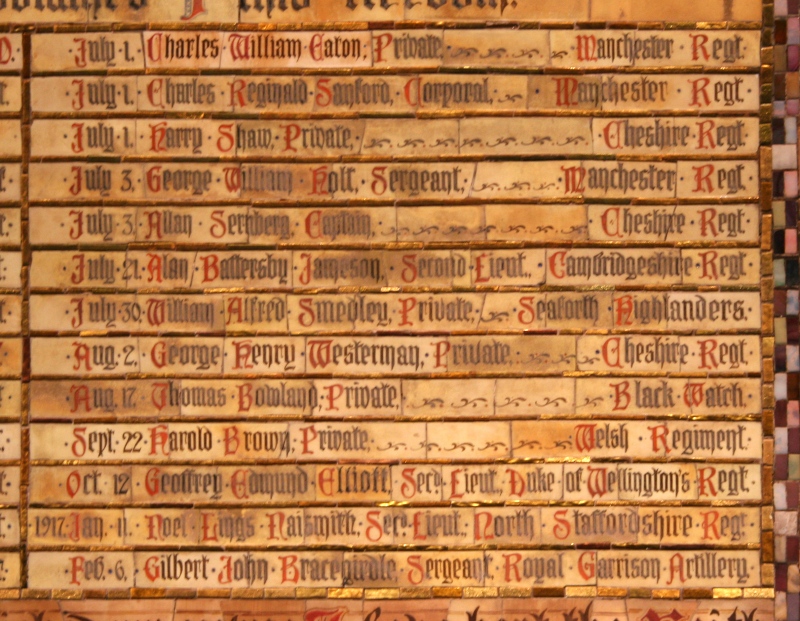 July 1. Charles William Eaton, Private, Manchester Regt.
July 1. Charles Reginald Sanford, Corporal, Manchester Regt.
July 1. Harry Shaw, Private, Cheshire Regt.
July 3. George William Holt, Sergeant, Manchester Regt.
July 3. Allan Sernberg, Captain, Cheshire Regt.
July 21. Alan Battersby Jameson, Second Lieut., Cambridgeshire Regt.
July 30. William Alfred Smedley, Private, Seaforth Highlanders.
Aug. 2. George Henry Westerman, Private, Cheshire Regt.
Aug. 17. Thomas Bowland, Private, Black Watch.
Sept. 22 Harold Brown, Private, Welsh Regiment.
Oct. 12 Geoffrey Edmund Elliott, Sec. Lieut., Duke of Wellington's Regt.
1917. Jan. 11. Noel Lings Naismith, Sec. Lieut., North Staffordshire Regt.
Feb. 6. Gilbert John Bracegirdle, Sergeant, Royal Garrison Artillery.